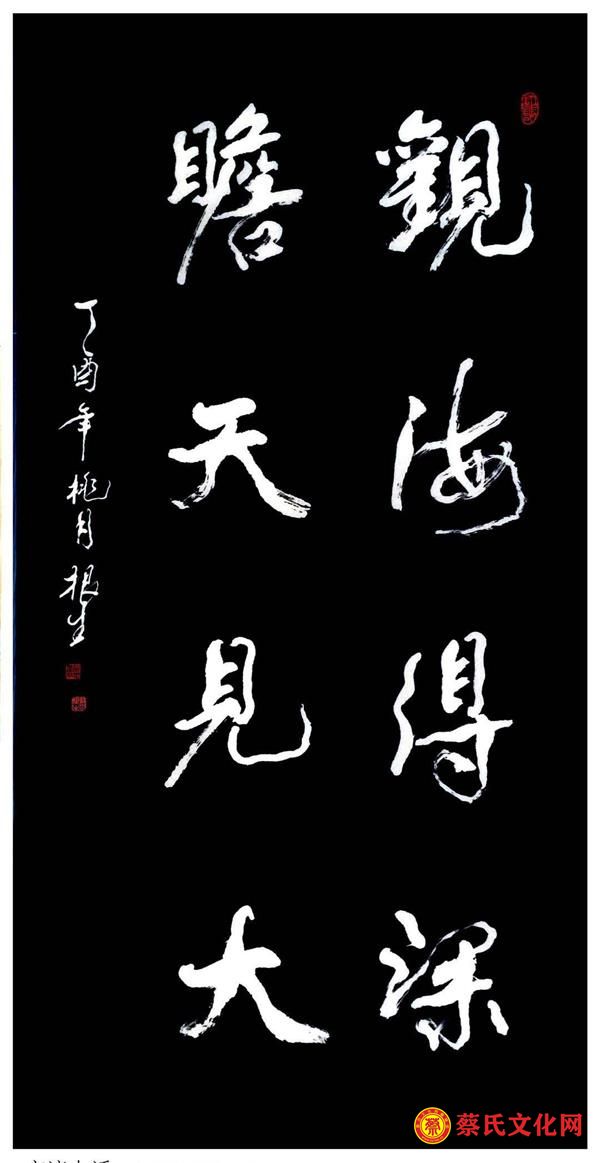 觀海得深
瞻天見大
丁酉年桃月根生
蔡氏文化网